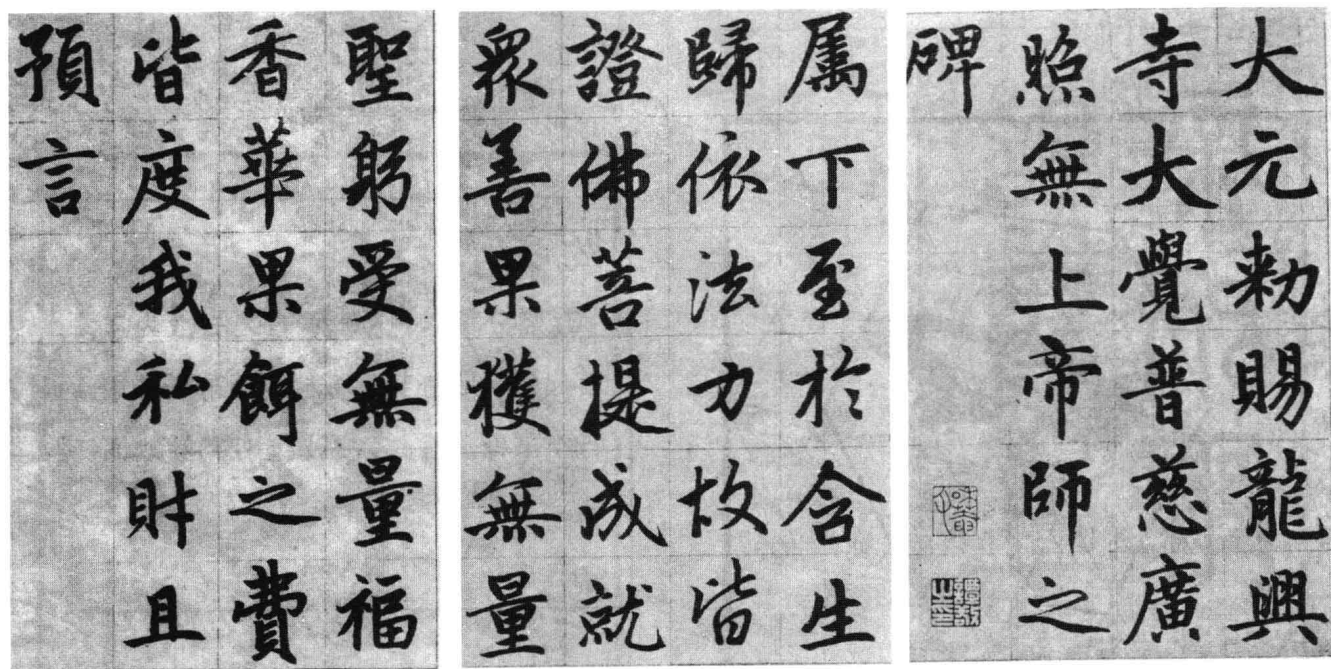 大元勑賜龍興
寺大覺普慈廣
照無上帝師之
碑
属下至於含生
歸依法力故皆
證佛菩提成就
衆善果獲無量
聖躬受無量福
香華果餌之費
皆度我私財且
預言